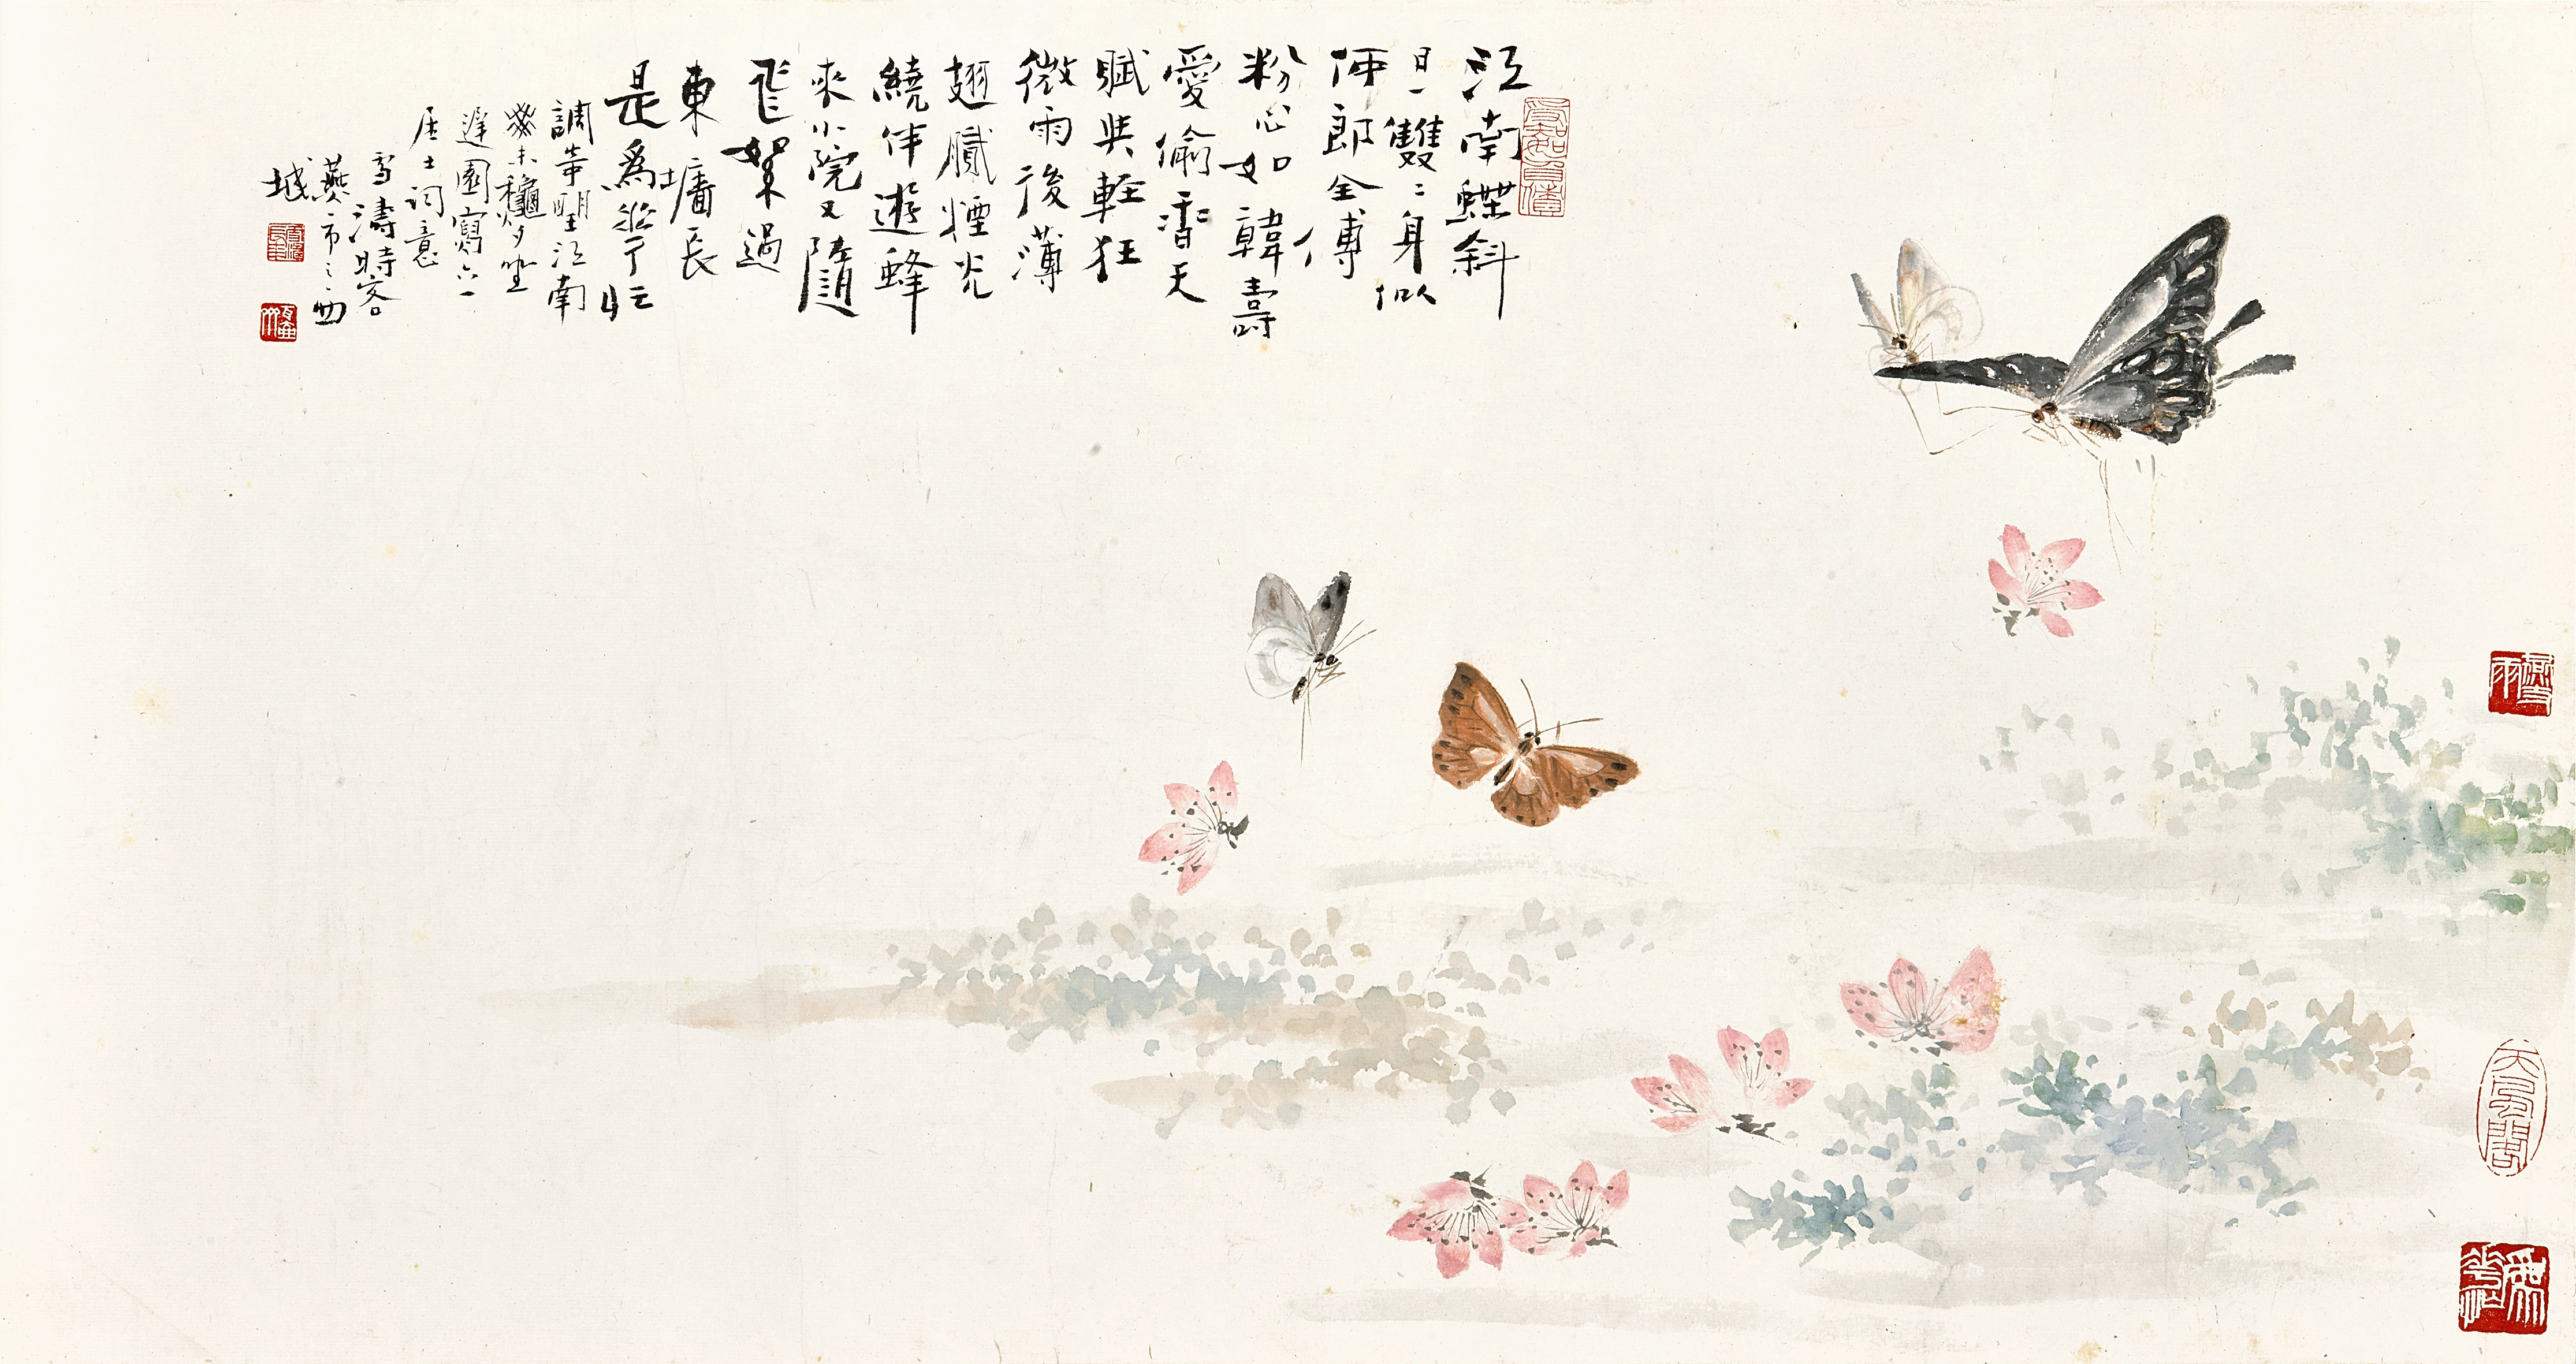 江南蝶斜
日一雙〻身似
何郎全傅
粉心如韓壽
愛偷香天
賦與輕狂
微雨後薄
翅膩煙光
繞伴遊蜂
來小院又隨
飛絮過
東墻長
是為花忙
調寄朢江南
癸未龝夕坐
遲園寫六一
居士詞意
雪濤時客
燕市之西
城